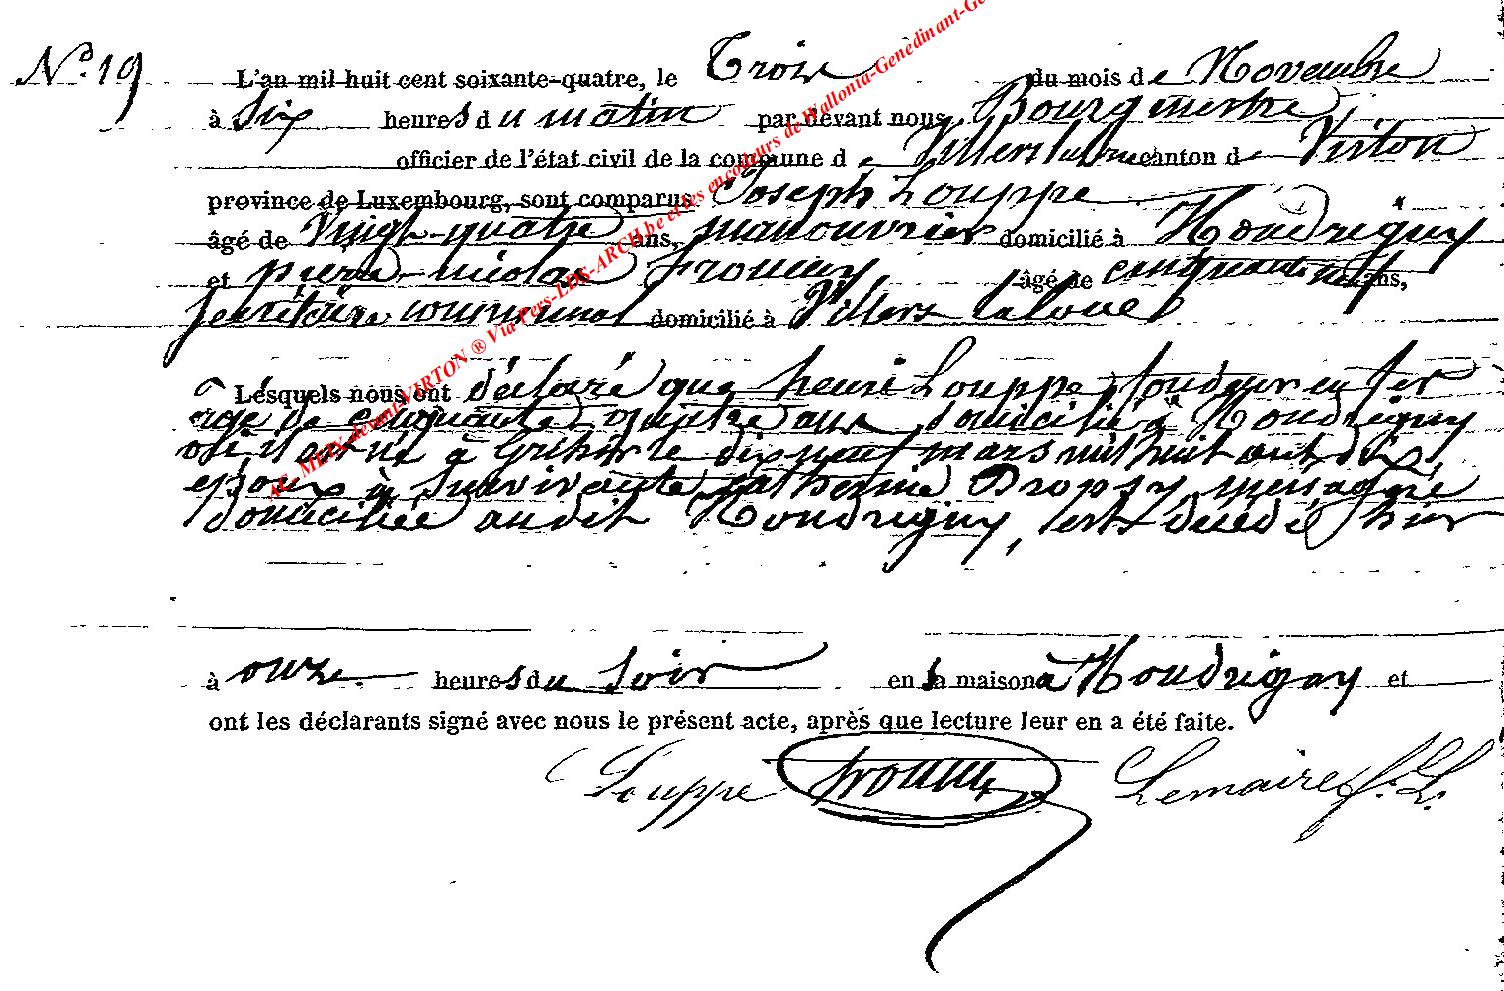 N.º 19
L'an mil huit cent soixante-quatre, le Trois du mois de Novembre
à Six heures du matin par devant nous, Bourgmestre
officier de l'état civil de la commune de Villers lalouecanton de Virton
province de Luxembourg, sont comparus Joseph Louppe
âgé de Vingt-quatre ans, manouvrier domicilié à Houdrigny
et pierre-nicolas âgé de cinquante neuf ans,
secrétaire communal domicilié à Villers laloue
Lesquels nous ont déclaré que henri Louppe soudeur en fer
age de cinquante quatre ans domicilié à Houdrigny
où il est né à le dix neuf mars mil huit cent dix
epoux à Survivante catherine Dropsy menagere
domiciliée audit Houdrigny, est décédé hier
à onze heures du Soir en sa maison à Houdrigny et
ont les déclarants signé avec nous le présent acte, après que lecture leur en a été faite.
Louppe Lemaire
AC METX-devant-VIRTON ® Via Pers-LDS-ARCH.be et les encodeurs de Wallonia-Genedinant-Ge